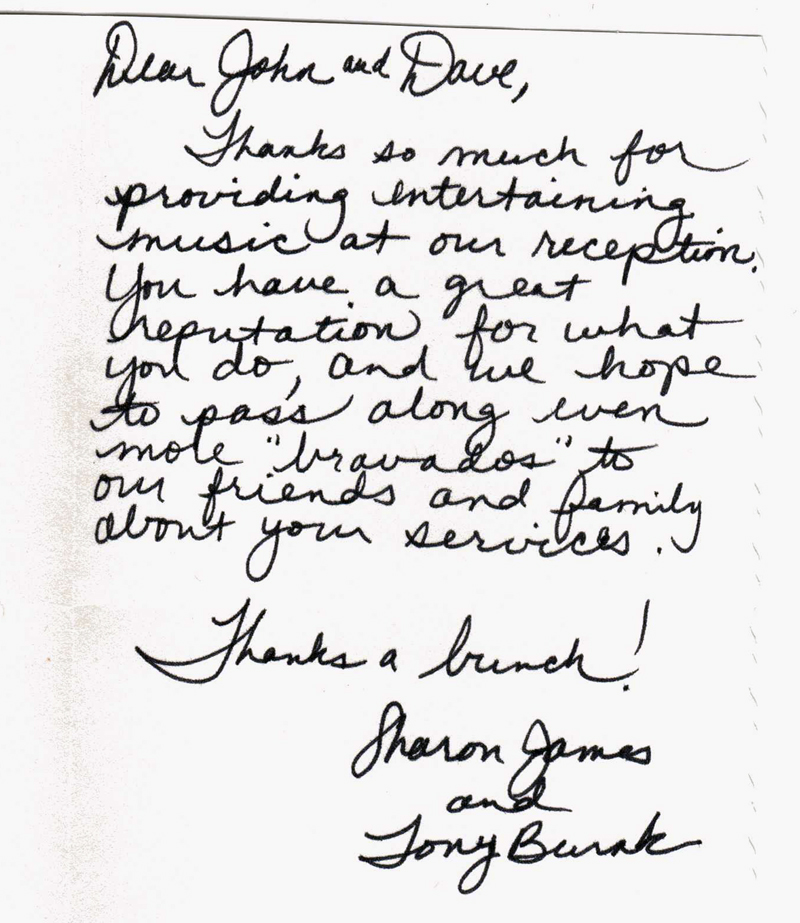 Dear John and Dave,
Thanks so much for
providing entertaining
music at our reception.
You have a great
reputation for what
you do, and we hope
to pass along even
more "bravados" to
our friends and family
about your services.
Thanks a bunch!
Sharon James
and
Tony